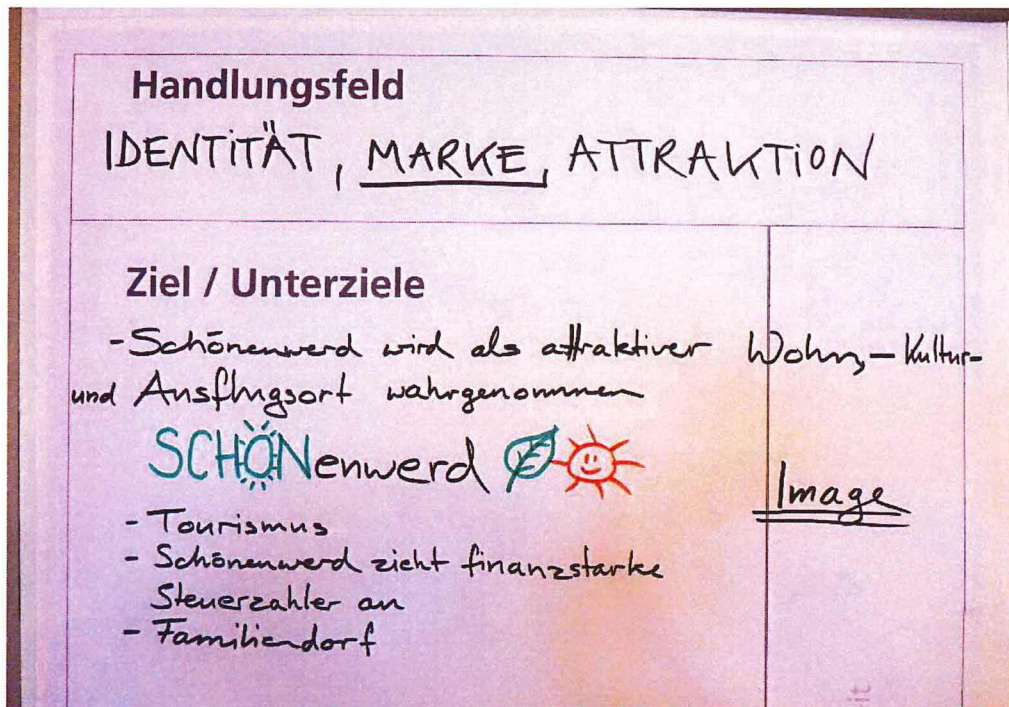 Handlungsfeld
IDENTITÄT, MARKE, ATTRAKTION
Ziel / Unterziele
- Schönenwerd wird als attraktiver Wohn,- Kultur-
und Ausflugsort wahrgenommen
SCHÖNenwerd
Image
- Tourismus
- Schönenwerd zieht finanzstarke
Steuerzahler an
- Familiendorf